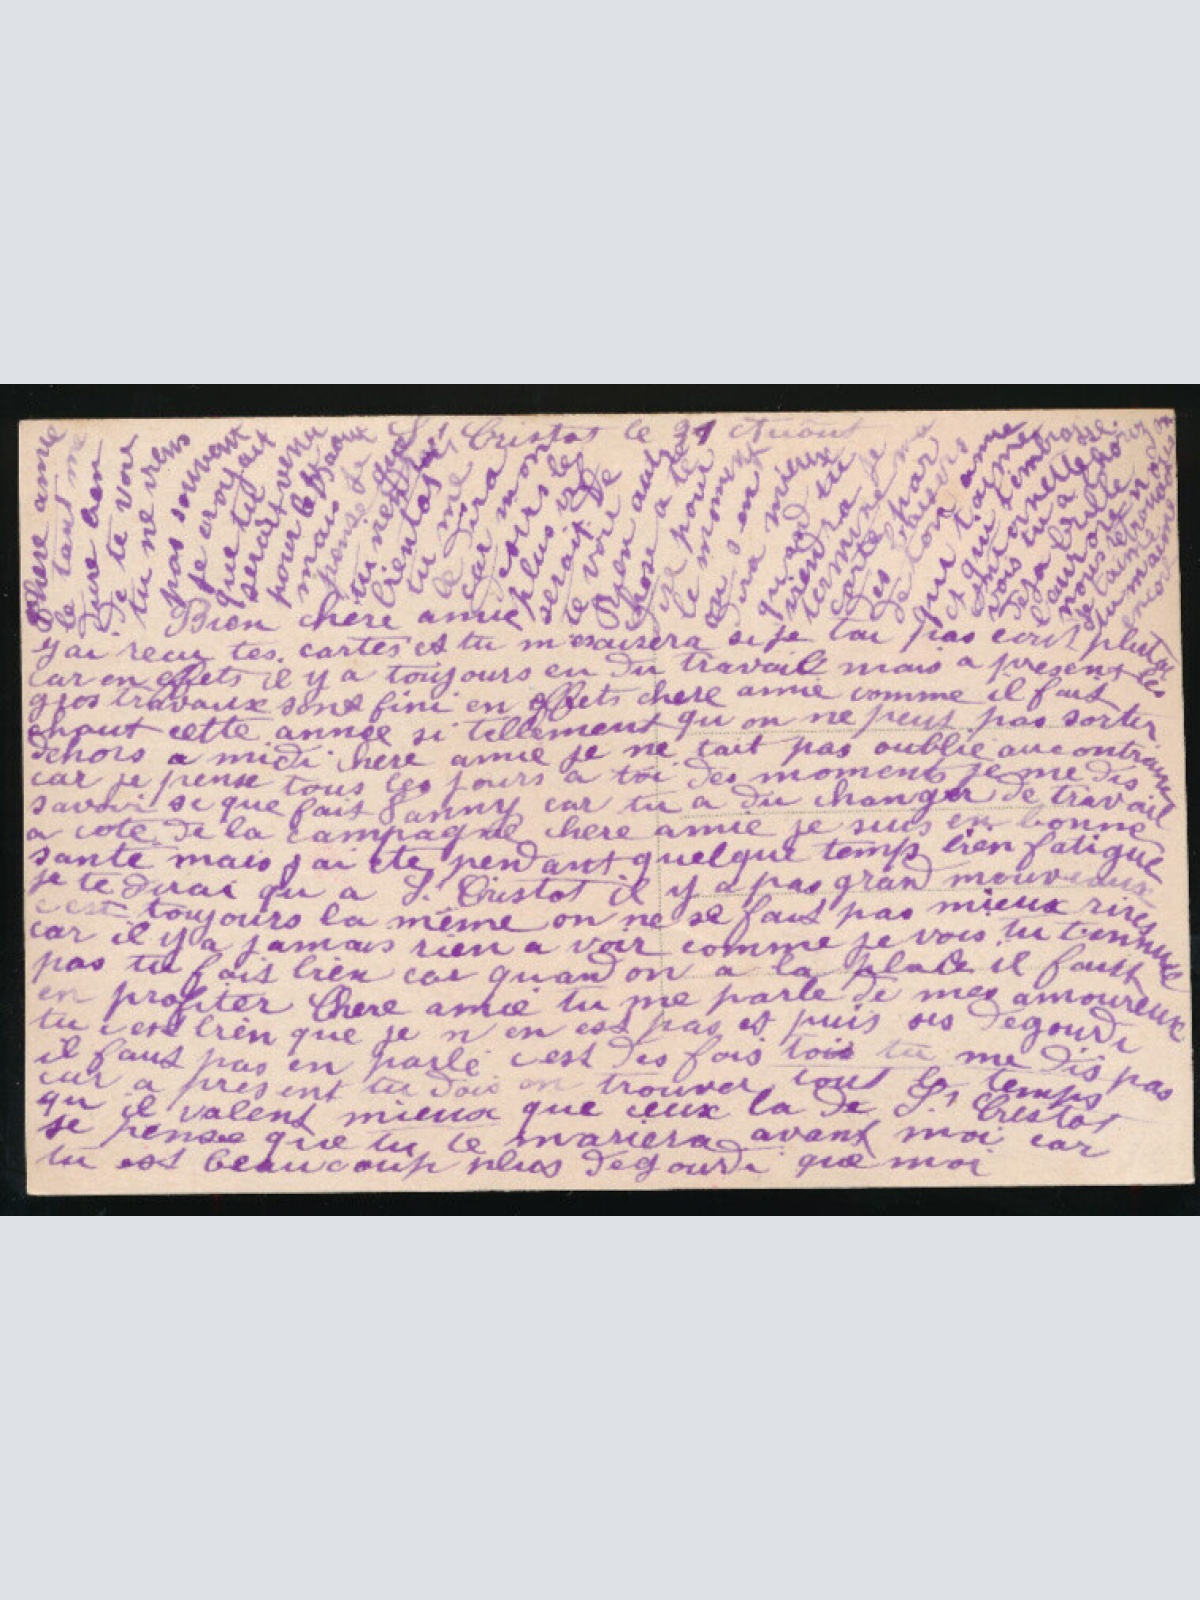 St Cristot le 21 Auout
Bien chère amie
j'ai recu tes cartes et tu m'exausera si je tai pas ecrit plutot
car en effets il y a toujours eu du travail mais a present les
gros travaux sont fini en effets chere amie comme il fait
chaut cette année si tellement qu on ne peut pas sortir
dehors a midi chere amie je ne tait pas oublié au contraire
car je pense tous les jours a toi des moments je me dis
savoir se que fait Fanny car tu a du changer de travail
a coté de la campagne chere amie je suis en bonne
santé mais j ai été pendant quelque temp bien fatigué
je te dirai qu a St Cristot il y a pas grand mouveaux
c est toujours la même on ne se fait pas mieux rires
car il y a jamais rien a voir comme je vois tu t'ennuie
pas tu fais bien car quand on a la place il faut
en profiter Chere amie tu me parle de mes amoureux
tu c est bien que je n en est pas et puis ses degourdi
il faut pas en parlé c est des fois tois tu me dis pas
car a present tu dois en trouver tout le temps
qu il valent mieux que ceux la de St Cristot
je pense que tu te mariera avant moi car
tu est beaucoup plus degourdi que moi
Chère amie
le tant me
dure bien
de te voir
tu ne viens
pas souvent
je croyait
que tu
serait venu
pour le 15 Aout
mais je
pense que
tu viendras
bientot
tu me
le dira
car mon
cours les
plus vif
serait de
te voir
Rien autre
chose a te
dire pour
le moment
au s en
ira mieux
quand tu
viendra
termine je
carte ma
des par
de ton baisers
amie
qui t aime
et qui t'embrasse